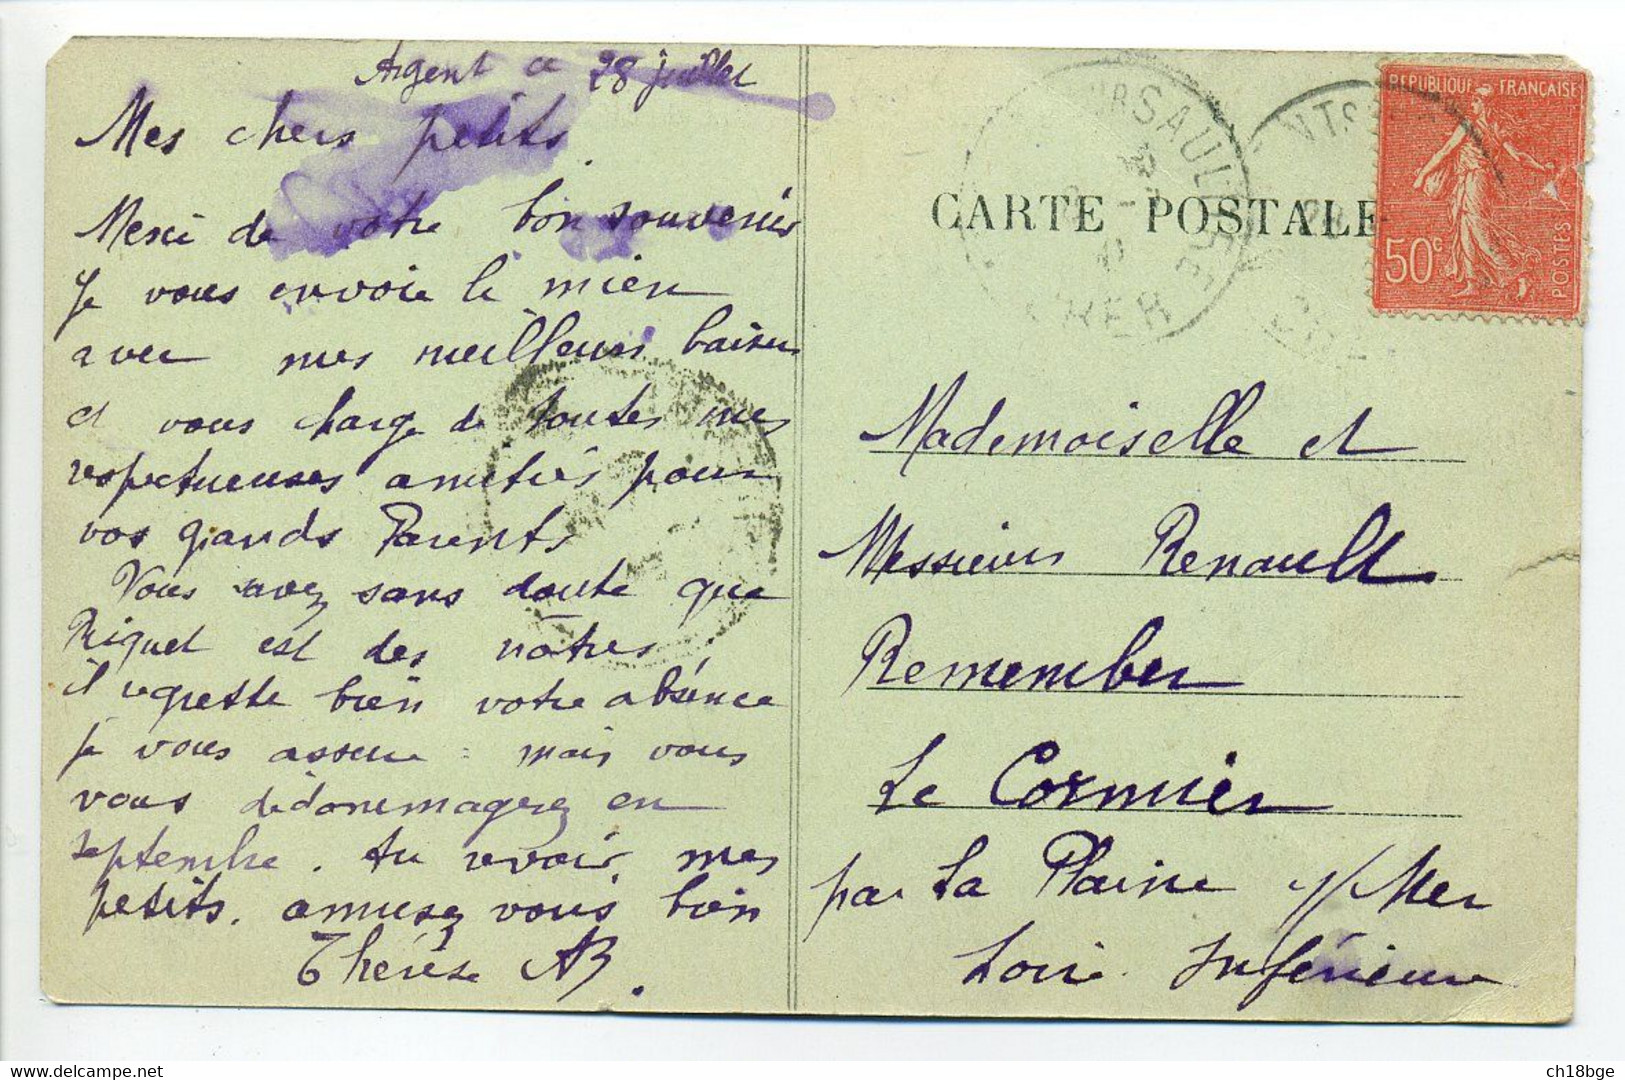 Argent ce 28 juillet
Mes chers petits.
Merci de votre bon souvenir
Je vous envoie le mien
avec mes meilleurs baisers
et vous charge de toutes mes
respectueuses amitiés pour
vos grands Parents
Vous avez sans doute que
Riquet est des nôtres,
il regrette bien votre absence
je vous assure : mais vous
vous dédommagerez en
septembre. Au revoir, mes
petits. amusez vous bien
Thérèse AB.
CARTE POSTALE
REPUBLIQUE FRANÇAISE
50c
POSTES
Mademoiselle et
Messieurs Renault
Remember
Le Cormier
par La Plaine s/Mer
Loire Inférieure
delcampe.net
ch18bge